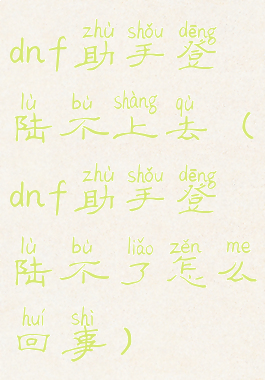 zhù shǒu dēng
dnf助手登
lù bù shàng qù
陆不上去（
zhù shǒu dēng
dnf助手登
lù bù liǎo zěn me
陆不了怎么
huí shì
回事）